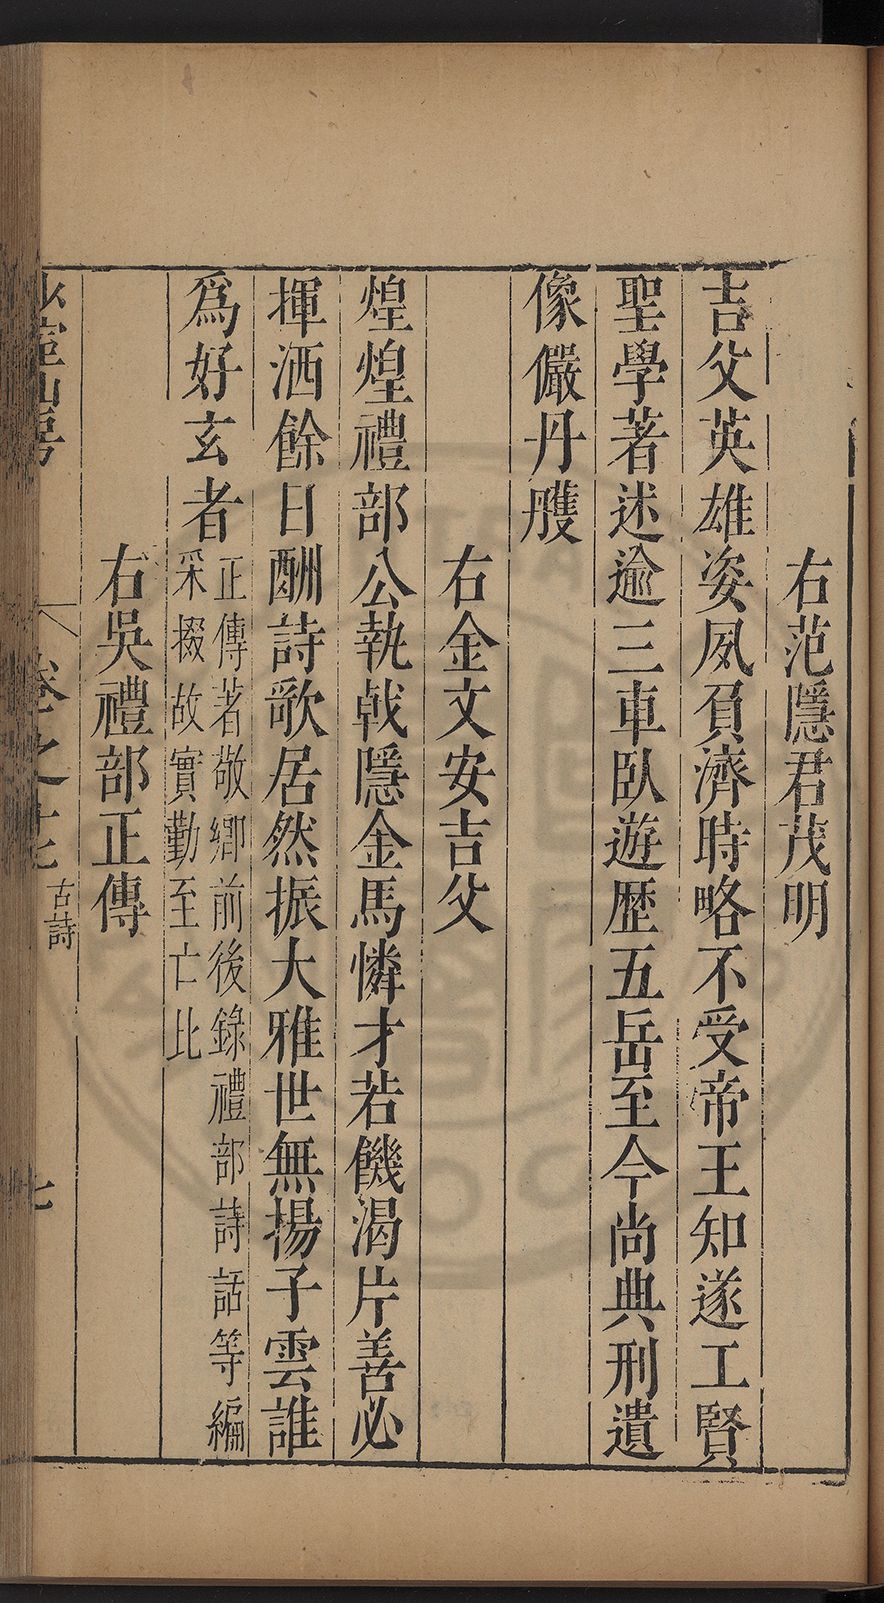 右范隱君茂明
吉父英雄姿夙負濟時略不受帝王知遂工賢
聖學著述逾三車臥遊歷五岳至今尚典刑遺
像儼丹雘
右金文安吉父
煌煌禮部公執戟隱金馬憐才若饑渴片善必
揮洒餘日酬詩歌居然振大雅世無揚子雲誰
爲好玄者
正傳著敬鄉前後錄禮部詩話等編
采掇故實勤至亡比
右吳禮部正傳
少室山房
卷之十七
古詩
七